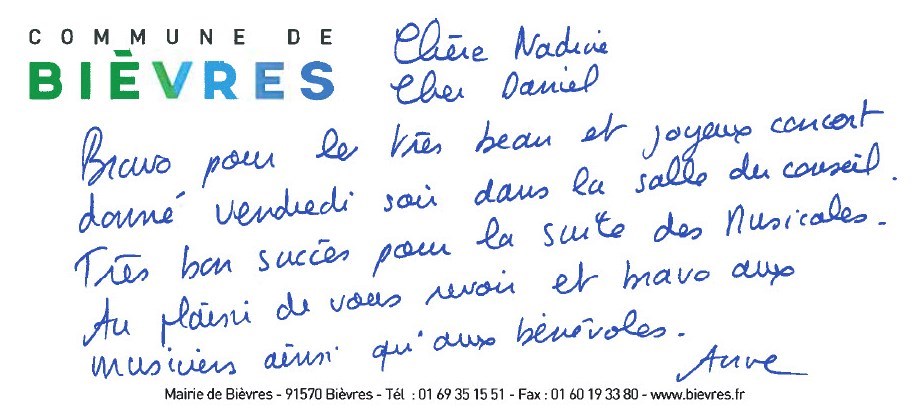 COMMUNE DE
BIÈVRES
Chère Nadine
Cher Daniel
Bravo pour le très beau et joyeux concert
donné vendredi soir dans la salle du conseil.
Très bon succès pour la suite des Musicales.
Au plaisir de vous revoir et bravo aux
musiciens ainsi qu'aux bénévoles.
Anne
Mairie de Bièvres - 91570 Bièvres - Tél : 01 69 35 15 51 - Fax : 01 60 19 33 80 - www.bievres.fr